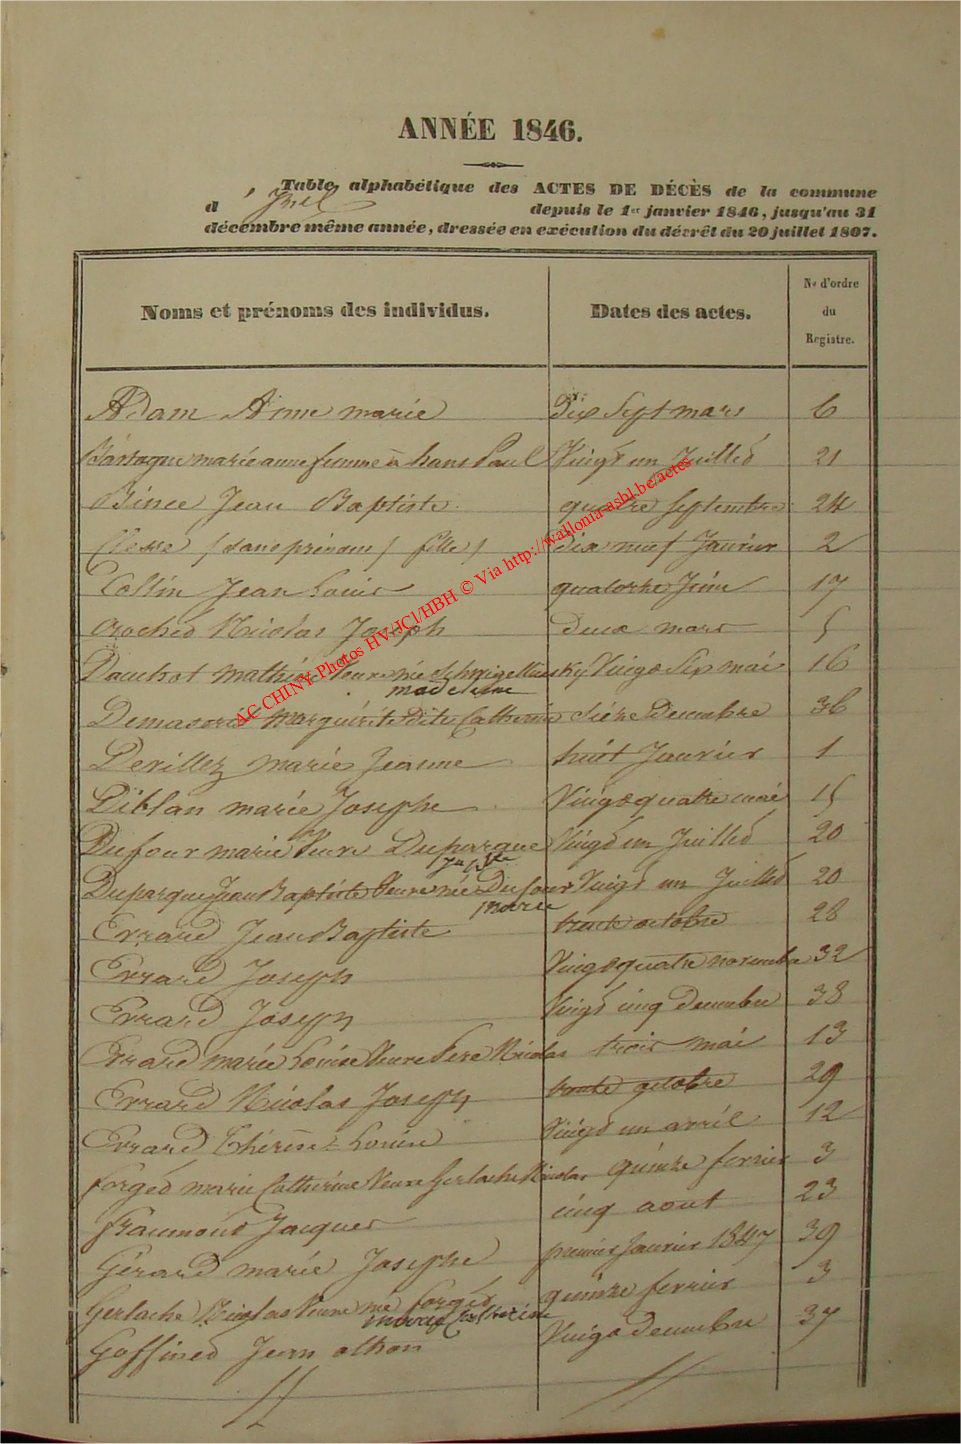 ANNÉE 1846.
Table alphabétique des ACTES DE DÉCÈS de la commune
d' Izel depuis le 1er janvier 1846, jusqu'au 31
décembre même année, dressée en exécution du décrêt du 20 juillet 1807.
Noms et prénoms des individus. Dates des actes. No d'ordre du Registre.
Adam Anne marie dix Sept mars 6
marie anne femme à hans Paul Vingt un Juillet 21
Bince Jean Baptiste quatre Septembre 24
Clesse / sans prénom / fille / dix neuf Janvier 2
Collin Jean Louis quatorze Juin 17
Crochet Nicolas Joseph deux mars 5
Dauchot mathieu Veuve née Vingt Six mai 16
madeleine
marguérite dite Catherine Seize Decembre 36
Devillez marie Jeanne huit Janvier 1
Diblan marie Josephe Vingt quatre mai 15
Dufour marie Veuve Duparque Vingt un Juillet 20
Jn Bte
Duparque Jean Baptiste Veuve née Dufour Vingt un Juillet 20
marie
Errard Jean Baptiste trente octobre 28
Errard Joseph Vingt quatre novembre 32
Errard Joseph Vingt cinq Decembre 38
Errard marie Louise Veuve Nicolas trois mai 13
Errard Nicolas Joseph trente octobre 29
Errard Thérèse Louise Vingt un avril 12
Forget marie Catherine Veuve Gerlache Nicolas quinze fevrier 3
Jacques cinq aout 23
Gérard marie Josephe premier Janvier 1847 39
Gerlache Nicolas Veuve née Forget quinze fevrier 3
marie Catherine
Goffinet Jean othon Vingt decembre 37
// //
AC CHINY Photos HV/JCl/HBH © Via http://wallonia-asbl.be/actes